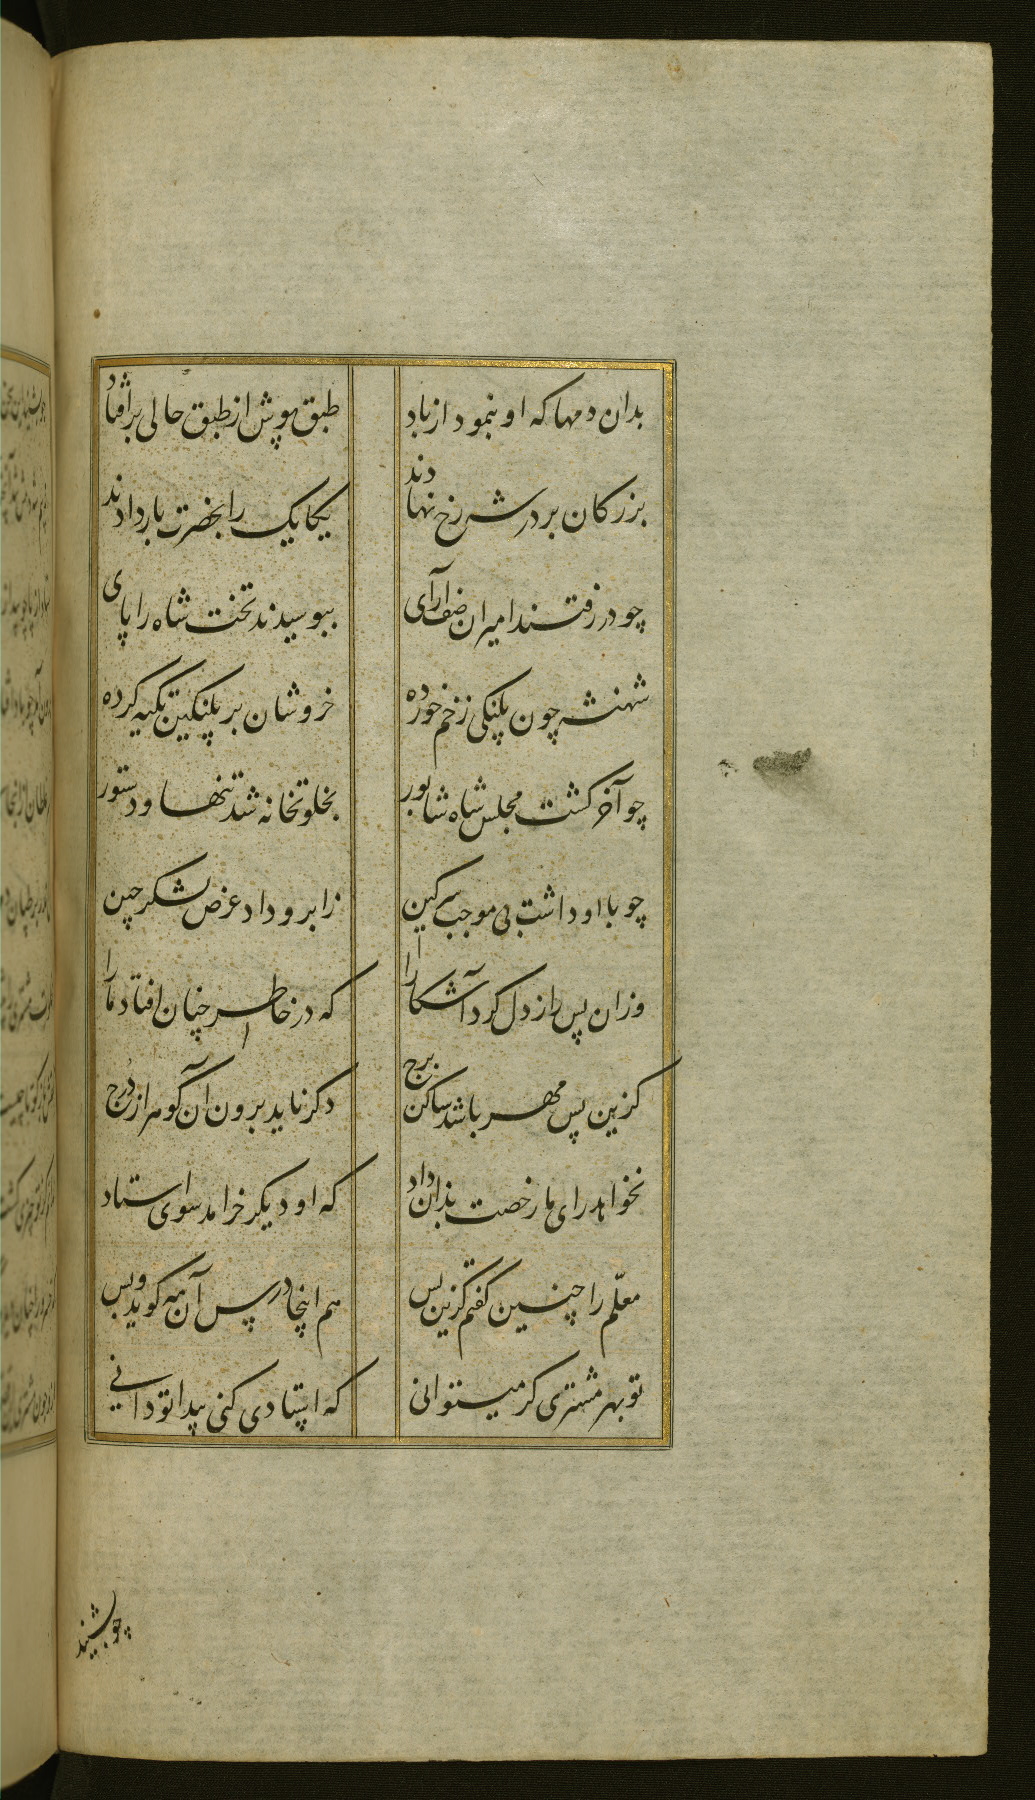 بدان دمها که او بنمود از باد طبق پوش از طبق حالی برافتاد
بزرکان بر درش رخ نهادند یکایک را بحضرت بار دادند
چو در رفتند امیران صف‌آرای ببوسیدند تخت شاه را پای
شهنشه چون پلنکی زخم خورده خروشان بر پلنکین تکیه کرده
چو آخر کشت مجلس شاه شابور بخلوتخانه شد تنها و دستور
چو با او داشت بی موجب سر کین ز ابرو داد عرض لشکر چین
وزان پس راز دل کرد آشکارا که در خاطر چنان افتاد ما را
کزین پس مهر باشد ساکن برج دکر ناید برون آن کوهر از درج
نخواهد رای ما رخصت بدان داد که او دیکر خرامد سوی استاد
معلّم را چنین کفتم کزین پس هم اینجا درس آن مه کوید و بس
تو بهر مشتری کر میتوانی که استادی کنی پیدا تو دانی
چو بشنید